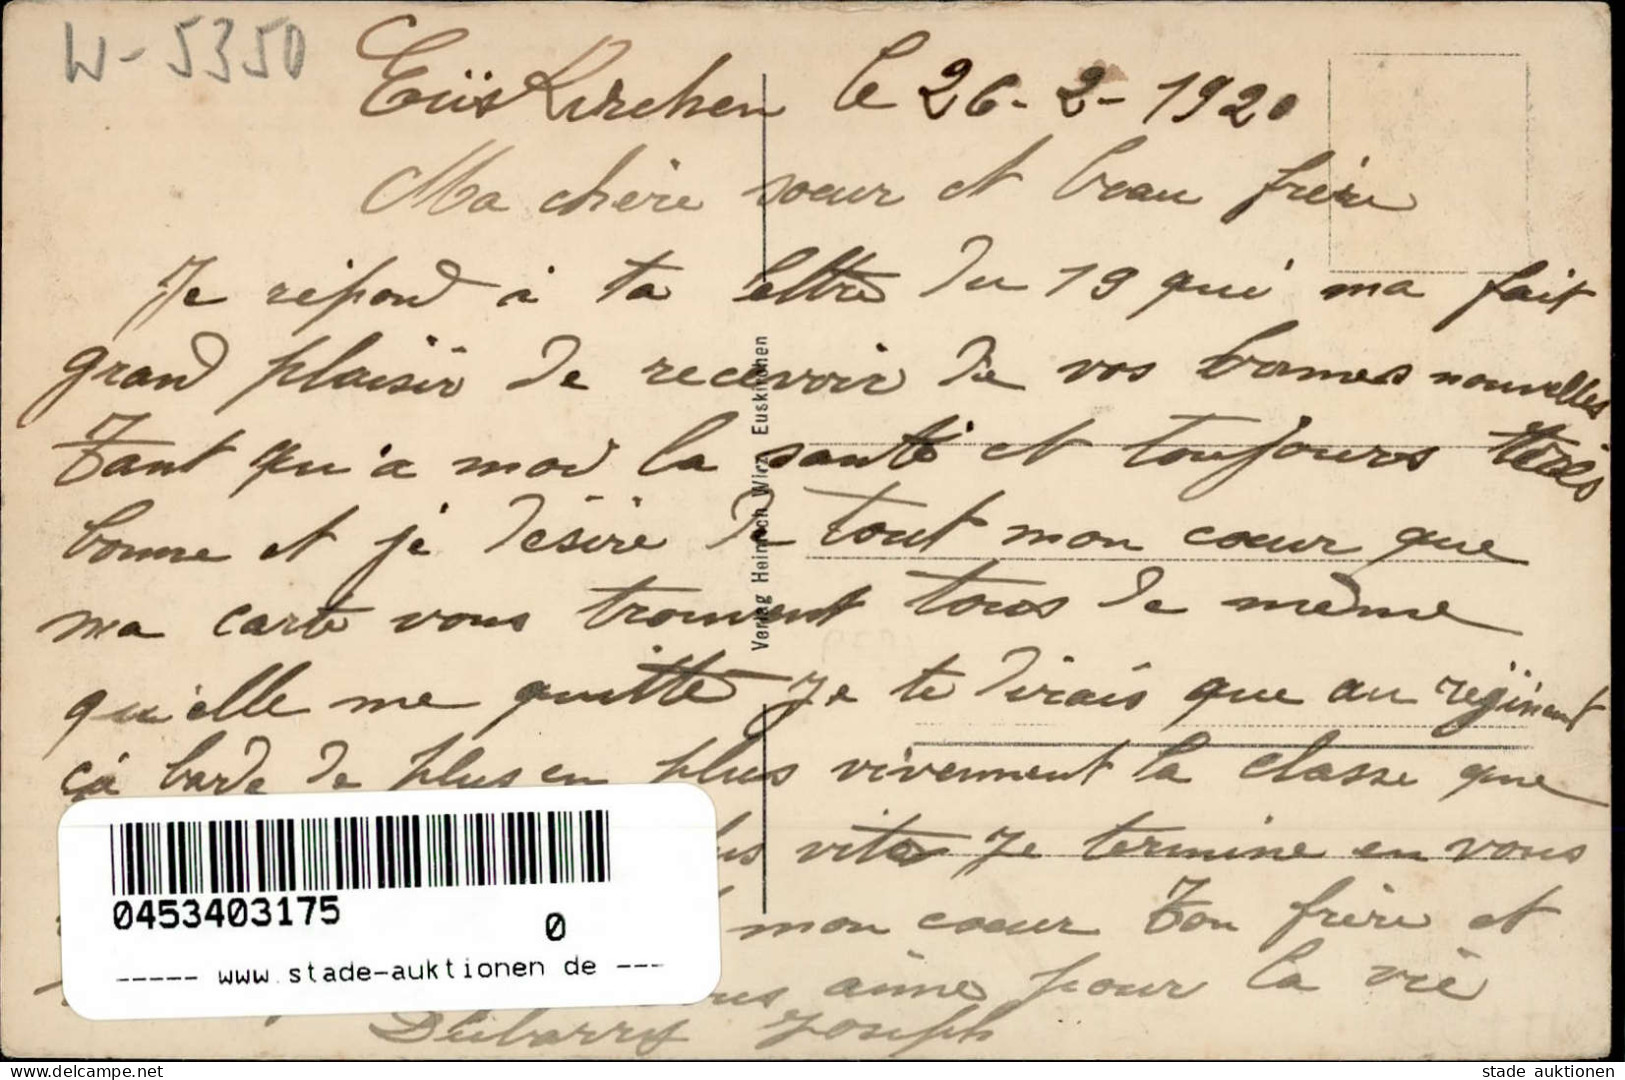 W-5350
Euskirchen le 26-2-1920
Ma chère sœur et beau frère
Je répond à ta lettre du 19 qui ma fait
grand plaisir de recevoir de vos bonnes nouvelles
Tant qu'a moi la santé et toujours très
bonne et je désire de tout mon cœur que
ma carte vous trouvent tous de même
qu'elle me quitte Je te dirais que au regiment
ça barde de plus en plus vivemment la classe que
vite Je termine en vous
mon cœur Ton frère et
aime pour la vie
Dubarry Joseph
Verlag Heinrich Wirz Euskirchen
0453403175
0
----- www.stade-auktionen de ---
delcampe.net
stade auktionen